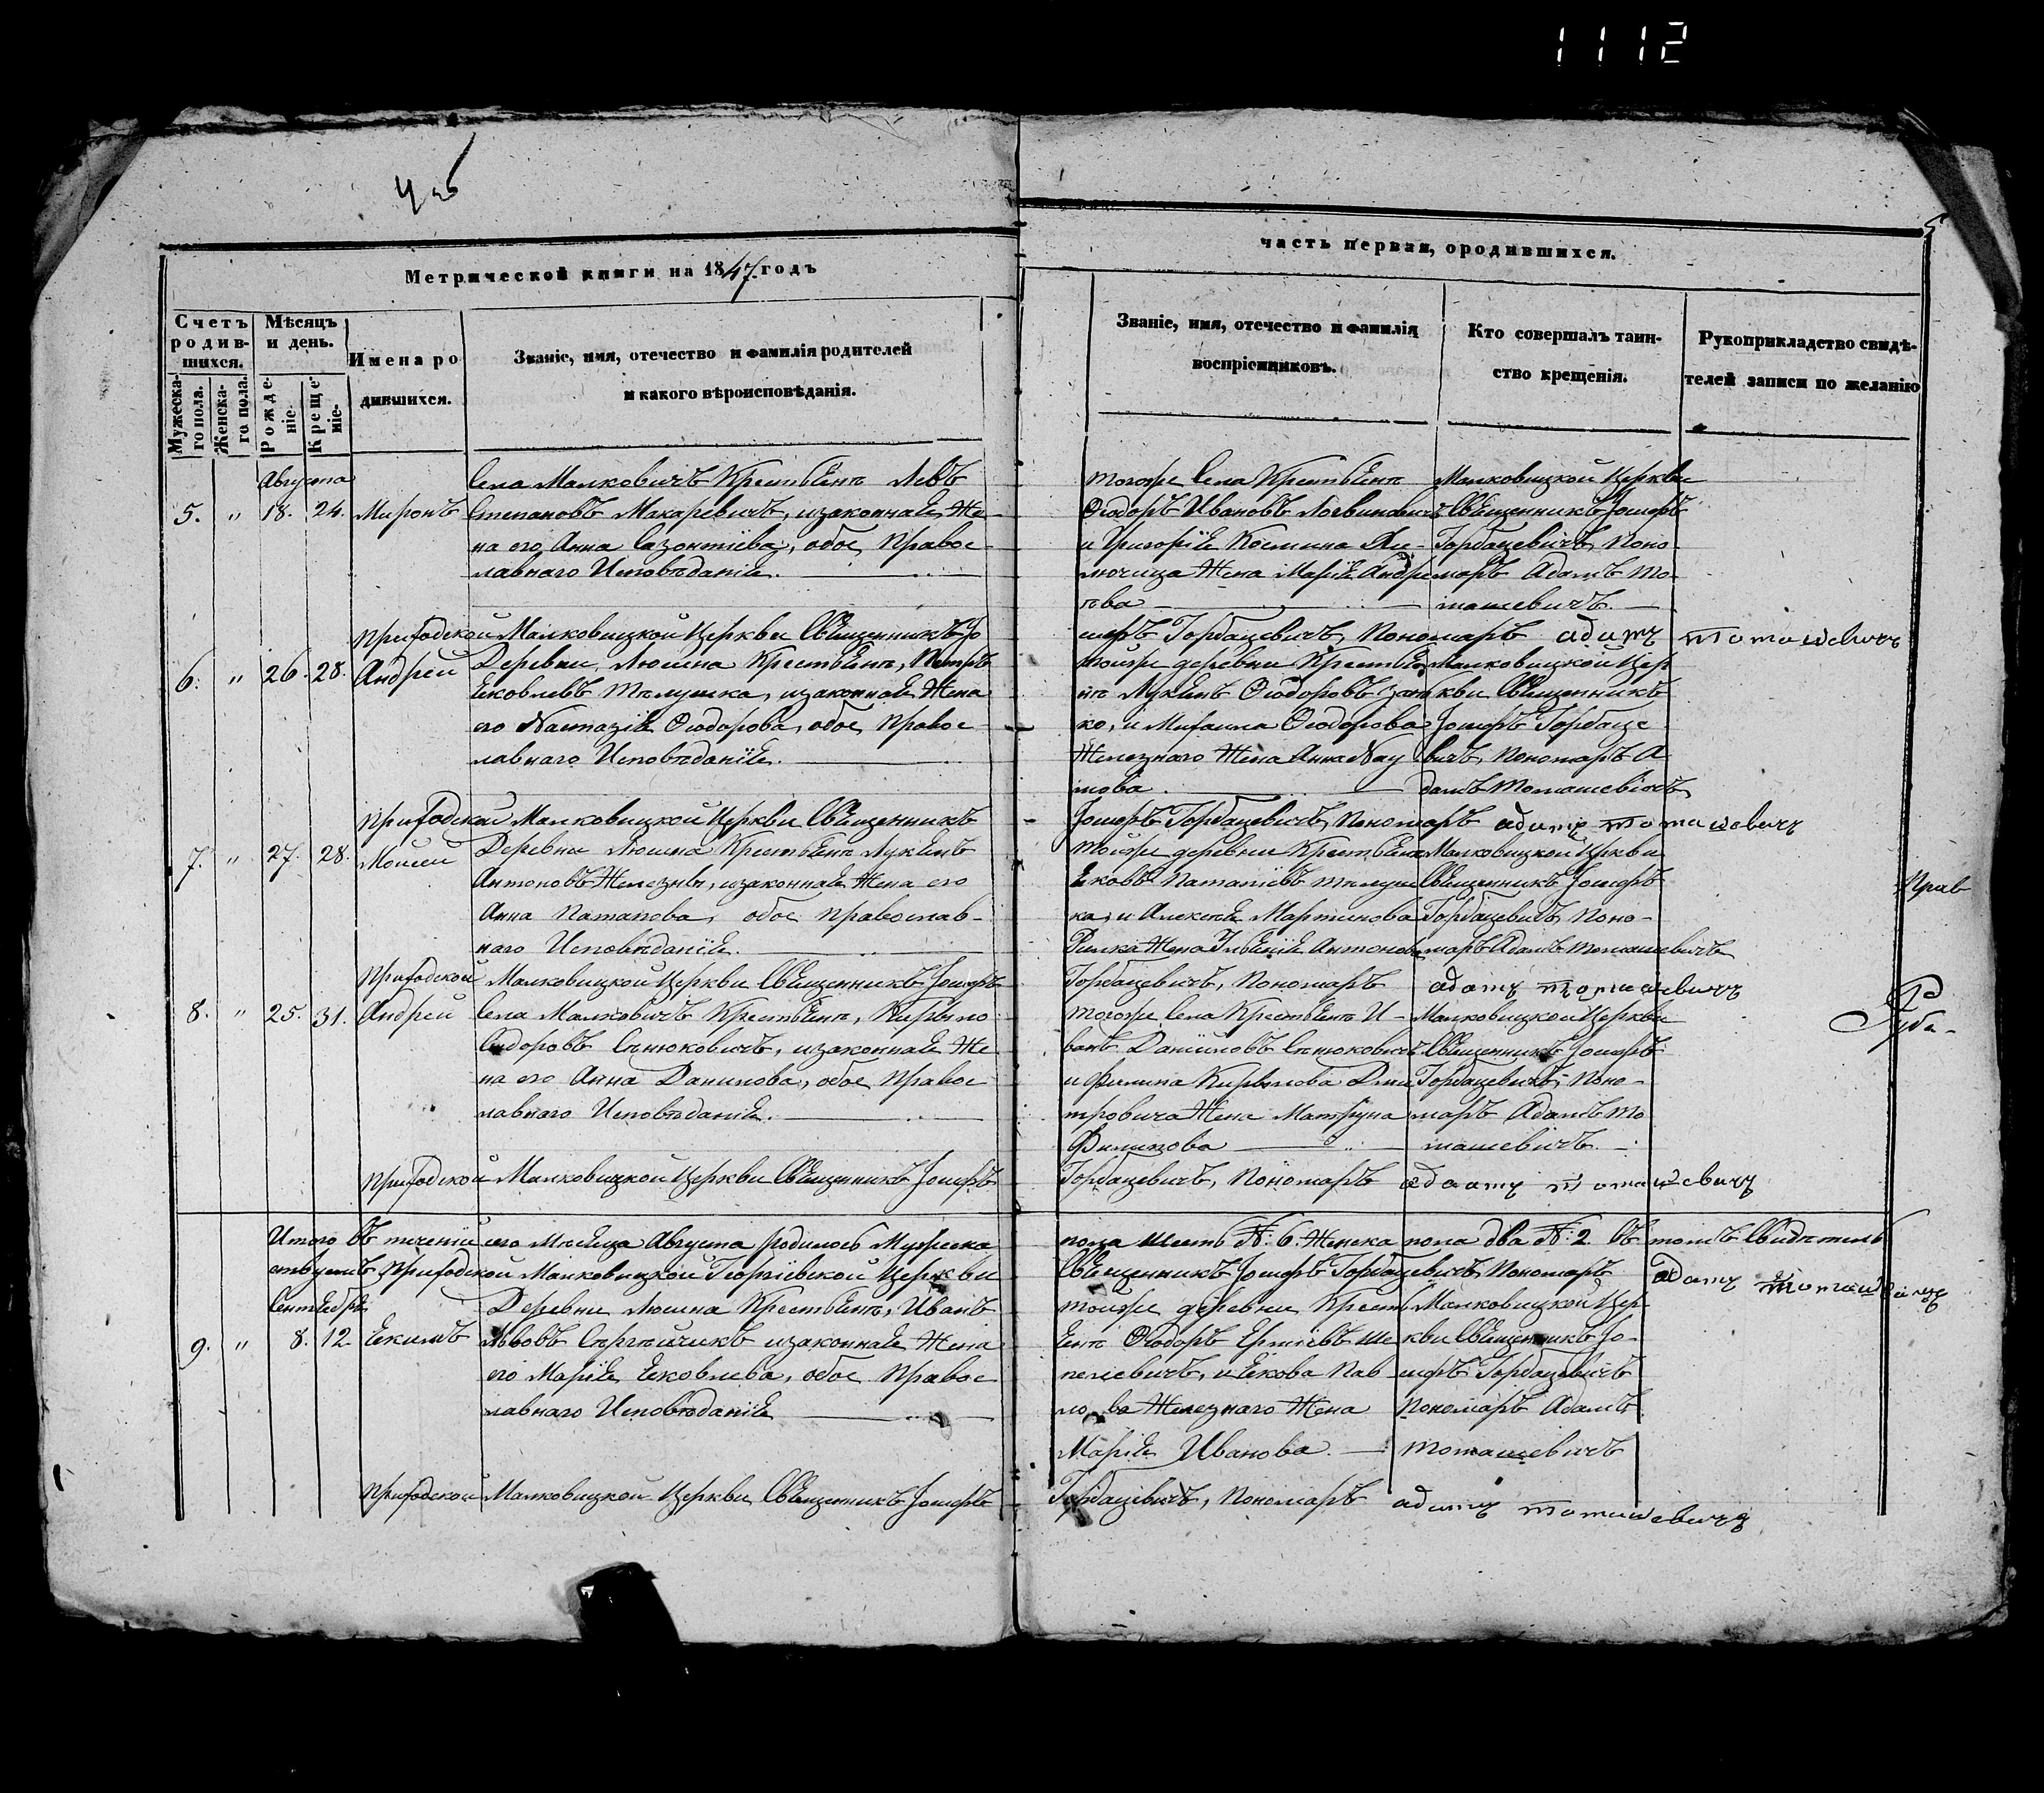 1112
4 об
5
Метрической книги на 1847. годъ
часть первая, ородившихся.
Счетъ родив-шихся.
Мужеска-го пола.
Женска-го пола.
Мѣсяцъ и день.
Рожде-ніе.
Креще-ніе.
Имена родившихся.
Званіе, имя, отечество и фамилія родителей
и какого вѣроисповѣданія.
Званіе, имя, отечество и фамилія
воспріемниковъ.
Кто совершалъ таин-
ство крещенія.
Рукоприкладство свидѣ-
телей записи по желанію
Августа
5. " 18. 24. Миронъ
Села Малковичъ Крестьянъ Левъ
Степановъ Макаревичъ, и законная Же-
на его Анна Сазонтіева, обое Правос-
лавнаго Исповѣданія.
тогоже Села Крестьянъ
Ѳеодоръ Ивановъ Логвиновичъ
и Григорія Космина
жена Марія Андре
ева
Малковицкой Церкви
Священникъ Іосифъ
Горбацевичъ, Поно-
маръ Адамъ То-
машевичъ.
Приходской Малковицкой Церкви Священникъ Іо
сифъ Горбацевичъ, Пономаръ адамъ томашевичъ
6. " 26. 28. Андрей
Деревни Люсина Крестьянъ, Петръ
Яковлевъ Телушка, и законная Жена
его Настазія Ѳеодорова, обое Правос-
лавнаго Исповѣданія.
тойже деревни Крестья
нъ Лукянъ Ѳеодоровъ
ко, и Михаила Ѳеодорова
Железнаго Жена Анна Нау
мова
Малковицкой Цер
кви Священникъ
Іосифъ Горбаце
вичъ, Пономаръ А
дамъ Томашевичъ
Приходской Малковицкой Церкви Священникъ
Іосифъ Горбацевичъ, Пономаръ адамъ томашевичъ
7. " 27. 28. Моисей
Деревни Люсина Крестьянъ Лукянъ
Антоновъ Железны, и законная Жена его
Анна Патапова, обое Православ-
наго Исповѣданія.
тойже деревни Крестьянъ
Яковъ Патапіевъ Телуш
ка, и Алексѣя Мартинова
Жена Антонова
Малковицкой Церкви
Священникъ Іосифъ
Горбацевичъ, Поно-
маръ Адамъ Томашевичъ
Прав
Приходской Малковицкой Церкви Священникъ Іосифъ
Горбацевичъ, Пономаръ адамъ томашевичъ
8. " 25. 31. Андрей
Села Малковичъ Крестьянъ, Кирыло
Сидоровъ Сенюковичъ, и законная Же
на его Анна Данилова, обое Правос
лавнаго Исповѣданія.
тогоже Села Крестьянъ И-
ванъ Даніиловъ Сенюковичъ
и Филипа Кирылова Дми
тровича Жена Матруна
Филипова
Малковицкой Церкви
Священникъ Іосифъ
Горбацевичъ, Поно-
маръ Адамъ То
машевичъ.
Приходской Малковицкой Церкви Священникъ Іосифъ
Горбацевичъ, Пономаръ адамъ томашевичъ
Итого въ теченіи сего Мѣсяца Августа родилось Мужеска
пола шесть №. 6. Женска пола два №. 2. Въ томъ Свидѣтель
ствуемъ Приходской Малковицкой Георгіевской Церкви
Священникъ Іосифъ Горбацевичъ, Пономаръ адамъ томашевичъ
Сентября
9. " 8. 12. Якимъ
Деревни Люсина Крестьянъ, Иванъ
Львовъ Сергейчикъ и законная Жена
его Марія Яковлева, обое Правос
лавнаго Исповѣданія
тойже деревни Кресть
янъ Ѳеодоръ Ше
пелевичъ, и Якова Пав
лова Железнаго Жена
Марія Иванова.
Малковицкой Цер
кви Священникъ Іо-
сифъ Горбацевичъ
Пономаръ Адамъ
Томашевичъ
Приходской Малковицкой Церкви Священникъ Іосифъ
Горбацевичъ, Пономаръ адамъ томашевичъ